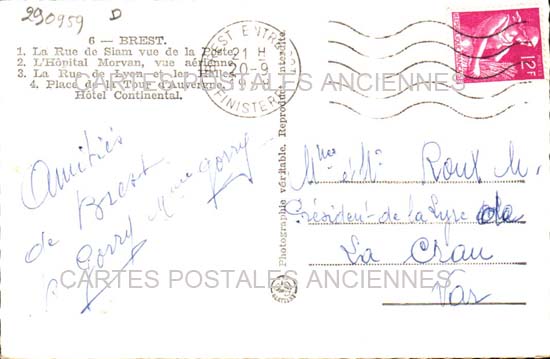 290959 D
6 — BREST.
1. La Rue de Siam vue de la Poste.
2. L'Hôpital Morvan, vue aérienne.
3. La Rue de Lyon et les Halles.
4. Place de la Tour d'Auvergne.
Hôtel Continental.
BREST ENTREPOT
21 H
20-9
FINISTERE
REPUBLIQUE FRANÇAISE
12F
Photographie véritable. Reproduction interdite.
Amitiés
de Brest
Gorry Gorry
Mme et Mr Roux M.
Président de la Lyre de
La Crau
Var
CARTES POSTALES ANCIENNES
CARTES POSTALES ANCIENNES